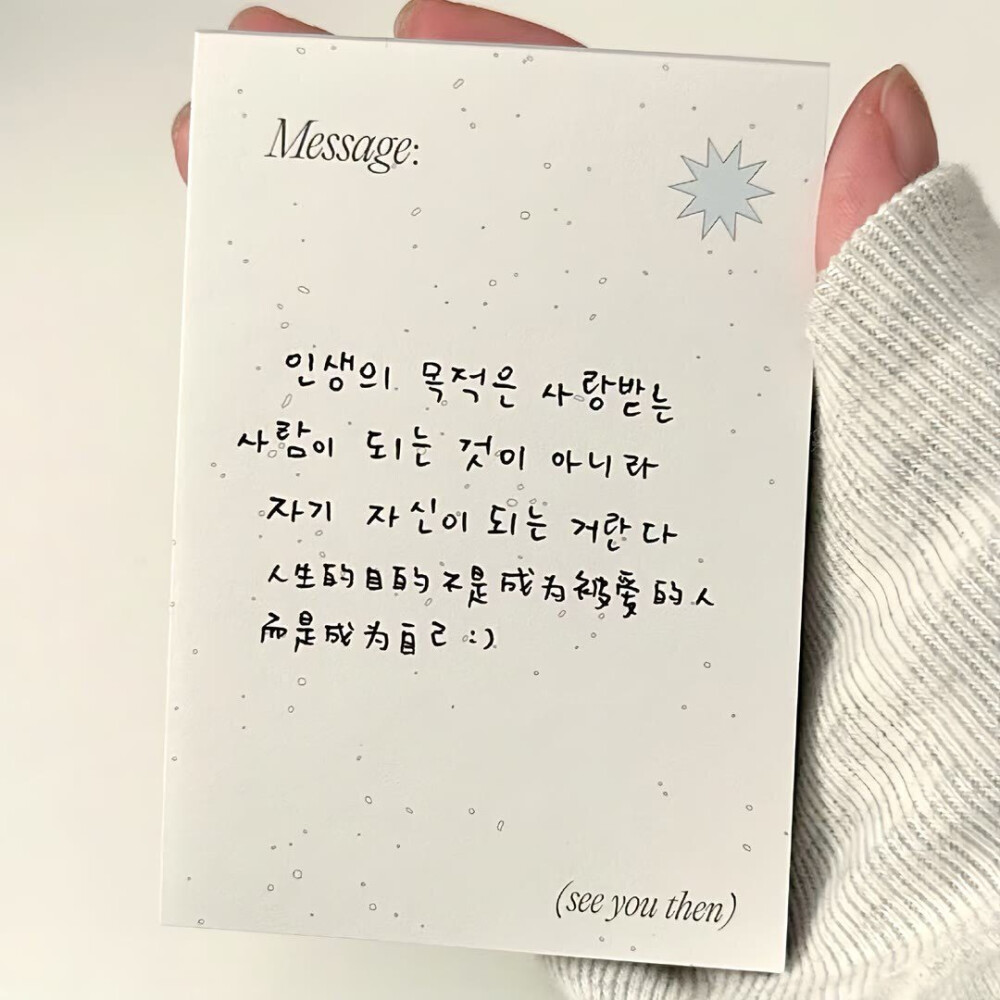 Message:
인생의 목적은 사랑받는
사람이 되는 것이 아니라
자기 자신이 되는 거란다
人生的目的不是成为被爱的人
而是成为自己 :)
(see you then)